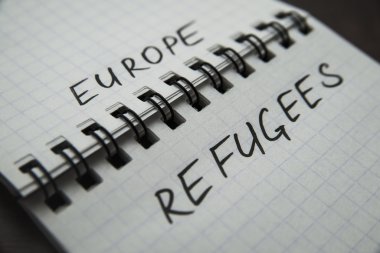 EUROPE
REFUGEES